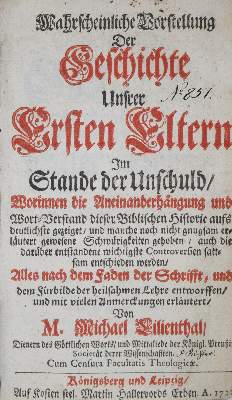 Wahrscheinliche Vorstellung
Der
Geschichte
Unsrer
No 851.
Ersten Eltern
Im
Stande der Unschuld/
Worinnen die Aneinanderhängung und
Wort-Verstand dieser Biblischen Historie aufs
deutlichste gezeiget/ und manche noch nicht gnugsam er-
läutert gewesene Schwürigkeiten gehoben/ auch die
darüber entstandene wichtigste Controversien satt-
sam entschieden werden/
Alles nach dem Faden der Schrifft, und
dem Fürbilde der heilsahmen Lehre entworffen/
und mit vielen Anmerckungen erläutert/
Von
M. Michael Lilienthal,
Dienern des Göttlichen Worts/ und Mitgliede der Königl. Preuß.
Societät derer Wissenschafften.
Cum Censura Facultatis Theologicæ.
Königsberg und Leipzig/
Auf Kosten sel. Martin Hallervords Erben A.